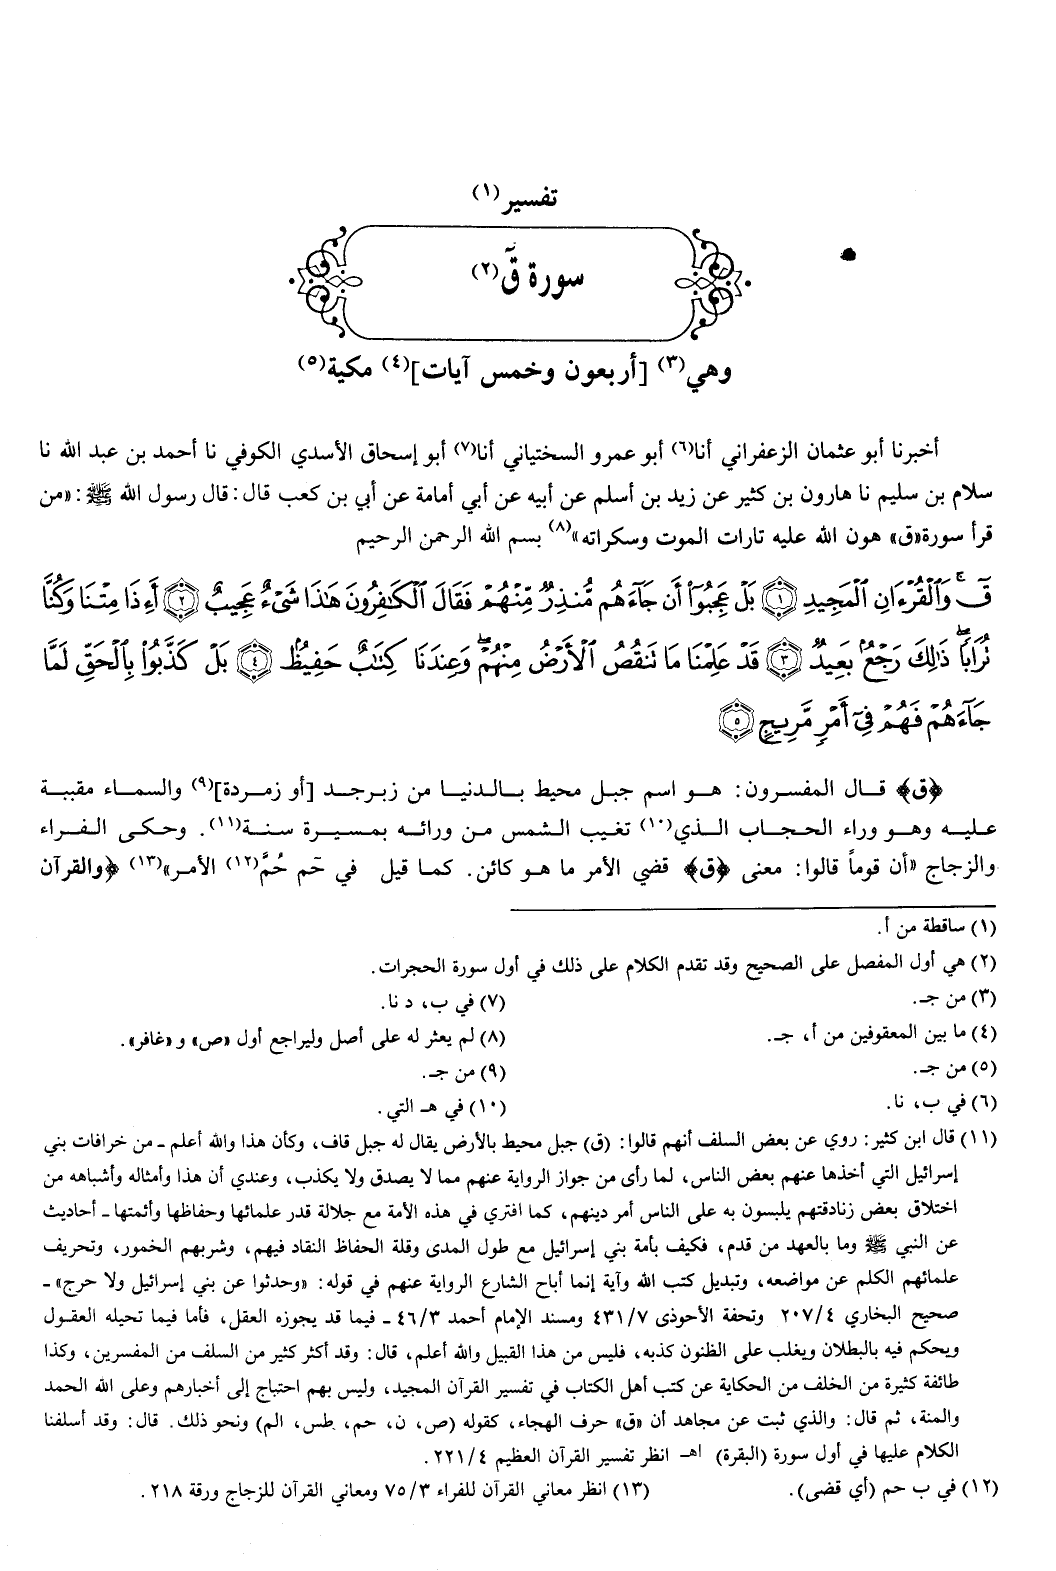 تفسير(١)
سورة قٓ(٢)
وهي(٣) [أربعون وخمس آيات](٤) مكية(٥)
أخبرنا أبو عثمان الزعفراني أنا(٦) أبو عمرو السختياني أنا(٧) أبو إسحاق الأسدي الكوفي نا أحمد بن عبد الله نا
سلام بن سليم نا هارون بن كثير عن زيد بن أسلم عن أبيه عن أبي أمامة عن أبي بن كعب قال: قال رسول الله ﷺ: «من
قرأ سورة«ق» هون الله عليه تارات الموت وسكراته»(٨) بسم الله الرحمن الرحيم
قٓ ۚ وَٱلْقُرْءَانِ ٱلْمَجِيدِ ١ بَلْ عَجِبُوٓا۟ أَن جَآءَهُم مُّنذِرٌ مِّنْهُمْ فَقَالَ ٱلْكَٰفِرُونَ هَٰذَا شَىْءٌ عَجِيبٌ ٢ أَءِذَا مِتْنَا وَكُنَّا
تُرَابًا ۖ ذَٰلِكَ رَجْعٌۢ بَعِيدٌ ٣ قَدْ عَلِمْنَا مَا تَنقُصُ ٱلْأَرْضُ مِنْهُمْ ۖ وَعِندَنَا كِتَٰبٌ حَفِيظٌۢ ٤ بَلْ كَذَّبُوا۟ بِٱلْحَقِّ لَمَّا
جَآءَهُمْ فَهُمْ فِىٓ أَمْرٍ مَّرِيجٍ ٥
﴿ق﴾ قال المفسرون: هو اسم جبل محيط بالدنيا من زبرجد [أو زمردة](٩) والسماء مقببة
عليه وهو وراء الحجاب الذي(١٠) تغيب الشمس من ورائه بمسيرة سنة(١١). وحكى الفراء
والزجاج «أن قوماً قالوا: معنى ﴿ق﴾ قضي الأمر ما هو كائن. كما قيل في حٓم حُمَّ(١٢) الأمر»(١٣) ﴿والقرآن
(١) ساقطة من أ.
(٢) هي أول المفصل على الصحيح وقد تقدم الكلام على ذلك في أول سورة الحجرات.
(٣) من جـ.
(٤) ما بين المعقوفين من أ، جـ.
(٥) من جـ.
(٦) في ب، نا.
(٧) في ب، د نا.
(٨) لم يعثر له على أصل وليراجع أول «ص» و«غافر».
(٩) من جـ.
(١٠) في هـ التي.
(١١) قال ابن كثير: روي عن بعض السلف أنهم قالوا: (ق) جبل محيط بالأرض يقال له جبل قاف، وكأن هذا والله أعلم ـ من خرافات بني
إسرائيل التي أخذها عنهم بعض الناس، لما رأى من جواز الرواية عنهم مما لا يصدق ولا يكذب، وعندي أن هذا وأمثاله وأشباهه من
اختلاق بعض زنادقتهم يلبسون به على الناس أمر دينهم، كما افتري في هذه الأمة مع جلالة قدر علمائها وحفاظها وأئمتها ـ أحاديث
عن النبي ﷺ وما بالعهد من قدم، فكيف بأمة بني إسرائيل مع طول المدى وقلة الحفاظ النقاد فيهم، وشربهم الخمور، وتحريف
علمائهم الكلم عن مواضعه، وتبديل كتب الله وآية إنما أباح الشارع الرواية عنهم في قوله: «وحدثوا عن بني إسرائيل ولا حرج» ـ
صحيح البخاري ٢٠٧/٤ وتحفة الأحوذى ٤٣١/٧ ومسند الإمام أحمد ٤٦/٣ ـ فيما قد يجوزه العقل، فأما فيما تحيله العقول
ويحكم فيه بالبطلان ويغلب على الظنون كذبه، فليس من هذا القبيل والله أعلم، قال: وقد أكثر كثير من السلف من المفسرين، وكذا
طائفة كثيرة من الخلف من الحكاية عن كتب أهل الكتاب في تفسير القرآن المجيد، وليس بهم احتياج إلى أخبارهم وعلى الله الحمد
والمنة، ثم قال: والذي ثبت عن مجاهد أن «ق» حرف الهجاء، كقوله (ص، ن، حم، طس، الم) ونحو ذلك. قال: وقد أسلفنا
الكلام عليها في أول سورة (البقرة) اهـ انظر تفسير القرآن العظيم ٢٢١/٤.
(١٢) في ب حم (أي قضى).
(١٣) انظر معاني القرآن للفراء ٧٥/٣ ومعاني القرآن للزجاج ورقة ٢١٨.